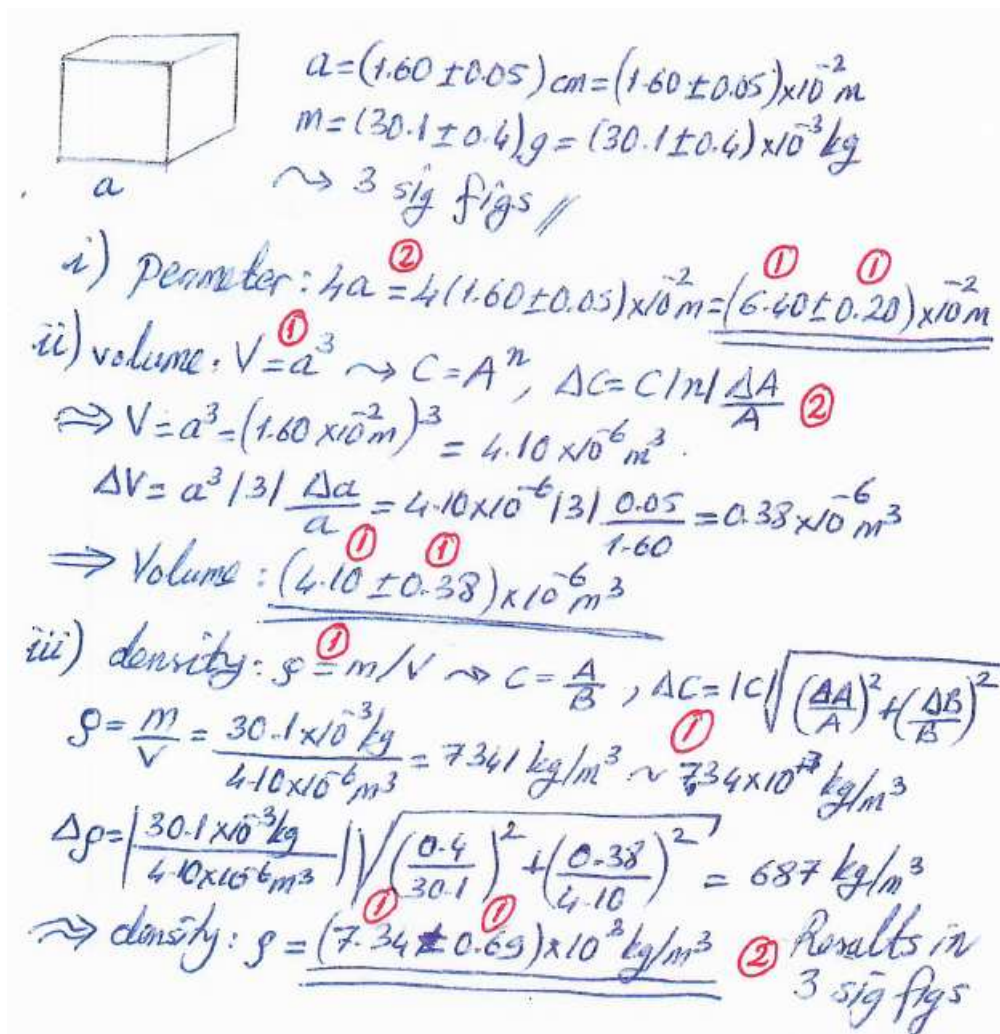 a = (1.60 ± 0.05) cm = (1.60 ± 0.05) x10⁻² m
m = (30.1 ± 0.4) g = (30.1 ± 0.4) x10⁻³ kg
a
⇝ 3 sig figs //
i) perimeter : 4a = ② 4(1.60 ± 0.05) x10⁻² m = (6.40 ① ± 0.20 ①) x10⁻² m
ii) volume : V = ① a³ ⇝ C = Aⁿ, ΔC = C |n| ΔA/A ②
⇒ V = a³ = (1.60 x10⁻² m)³ = 4.10 x10⁻⁶ m³.
ΔV = a³ |3| Δa/a = 4.10 x10⁻⁶ |3| 0.05/1.60 = 0.38 x10⁻⁶ m³
⇒ Volume : (4.10 ① ± 0.38 ①) x10⁻⁶ m³
iii) density : ρ = ① m/V ⇝ C = A/B, ΔC = |C| √((ΔA/A)² + (ΔB/B)²)
ρ = m/V = 30.1 x10⁻³ kg / 4.10 x10⁻⁶ m³ = 7341 kg/m³ ~ ① 7.34 x10³ kg/m³
Δρ = |30.1 x10⁻³ kg / 4.10 x10⁻⁶ m³| √((0.4/30.1)² + (0.38/4.10)²) = 687 kg/m³
⇒ density : ρ = (7.34 ① ± 0.69 ①) x10³ kg/m³ ② Results in
3 sig figs